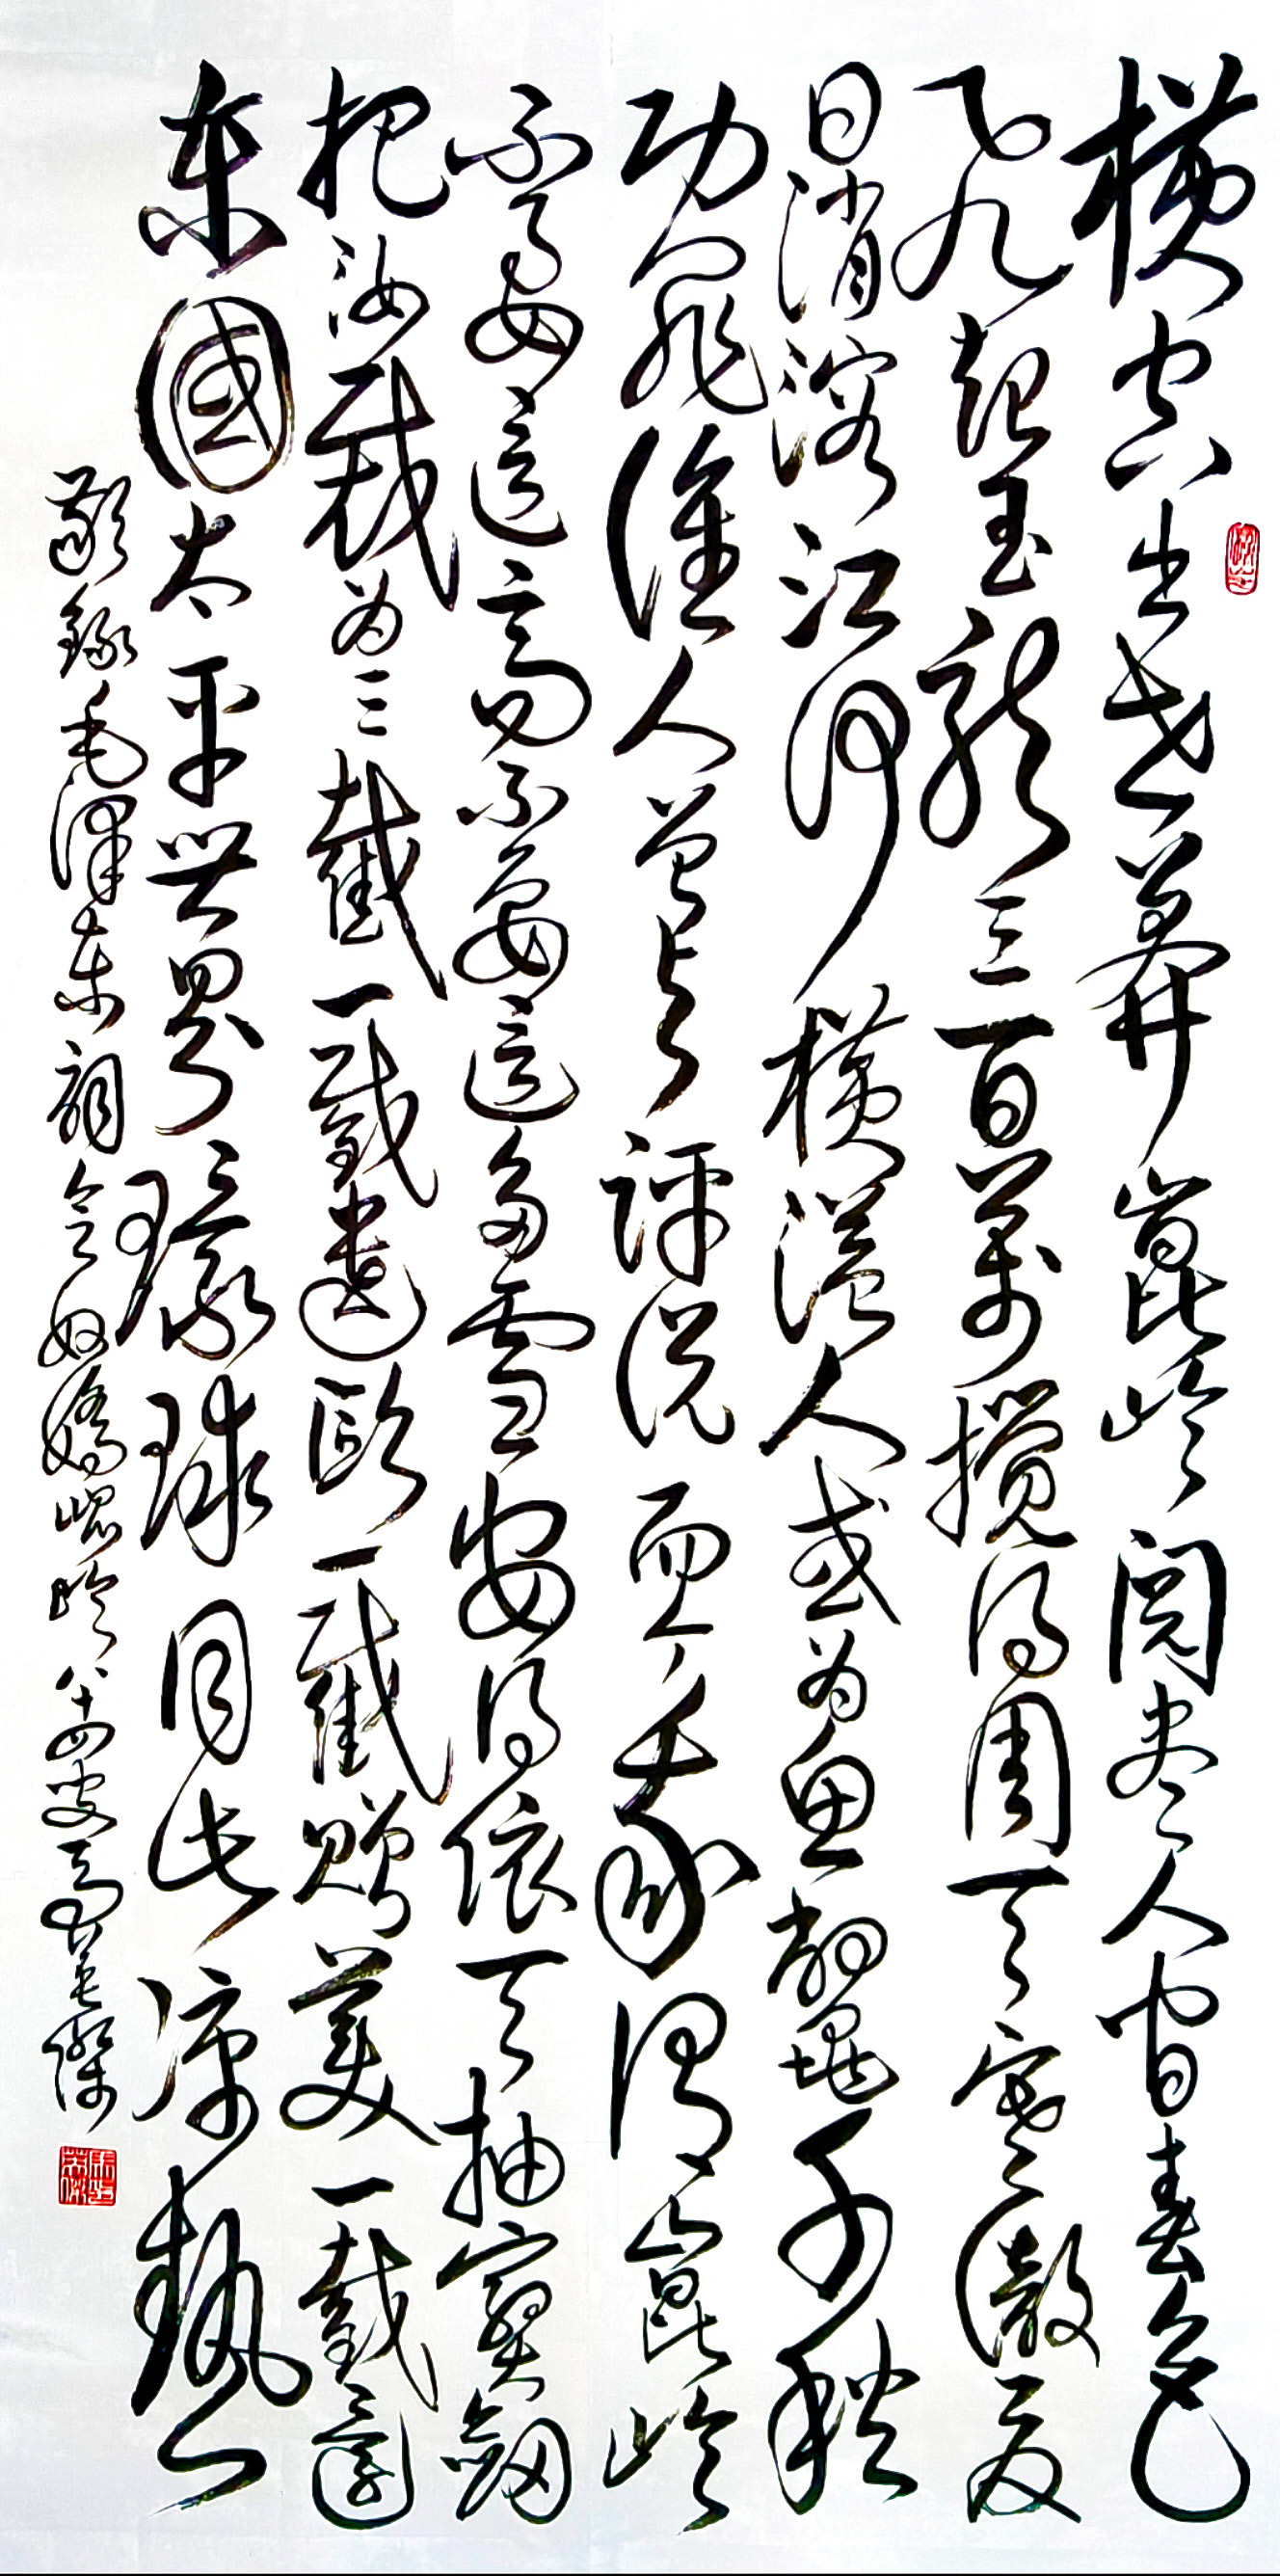 横空出世莽崑崙阅尽人间春色
飞起玉龙三百万搅得周天寒彻夏
日消溶江河横溢人或为鱼鳖千秋
功罪谁人曾与评说而今我谓崑崙
不要这高不要这多雪安得倚天抽寶劍
把汝裁为三截一截遗欧一截赠美一截還
东國太平世界環球同此凉热
敬録毛泽东词念奴嬌崑崙八十四叟高英傑